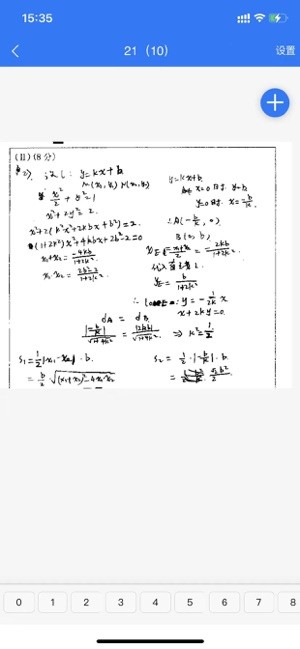 15:35
21（10）
设置
(II)(8分)
(2) 设 l: y=kx+b
M(x₁,y₁) N(x₂,y₂)
x²/2 + y² = 1
x²+2y²=2.
x²+2(k²x²+2kbx+b²)=2.
(1+2k²)x²+4kbx+2b²-2=0
x₁+x₂=-4kb/1+2k²
y=kx+b
x=0时 y=b
y=0时 x=-b/k
∴A(-b/k,0)
B(0,b)
x_E=x₁+x₂/2=-2kb/1+2k²
y_E=b/1+2k²
y=-1/2k x
x+2ky=0.
d_A = d_B
|-b/k|/√1+4k² = |2kb|/√1+4k² ⇒ k²=1/2
S₁=1/2|x₁-x₂|·b.
=b/2√(x₁+x₂)²-4x₁x₂
S₂=1/2·|-b/k|·b.
0 1 2 3 4 5 6 7 8